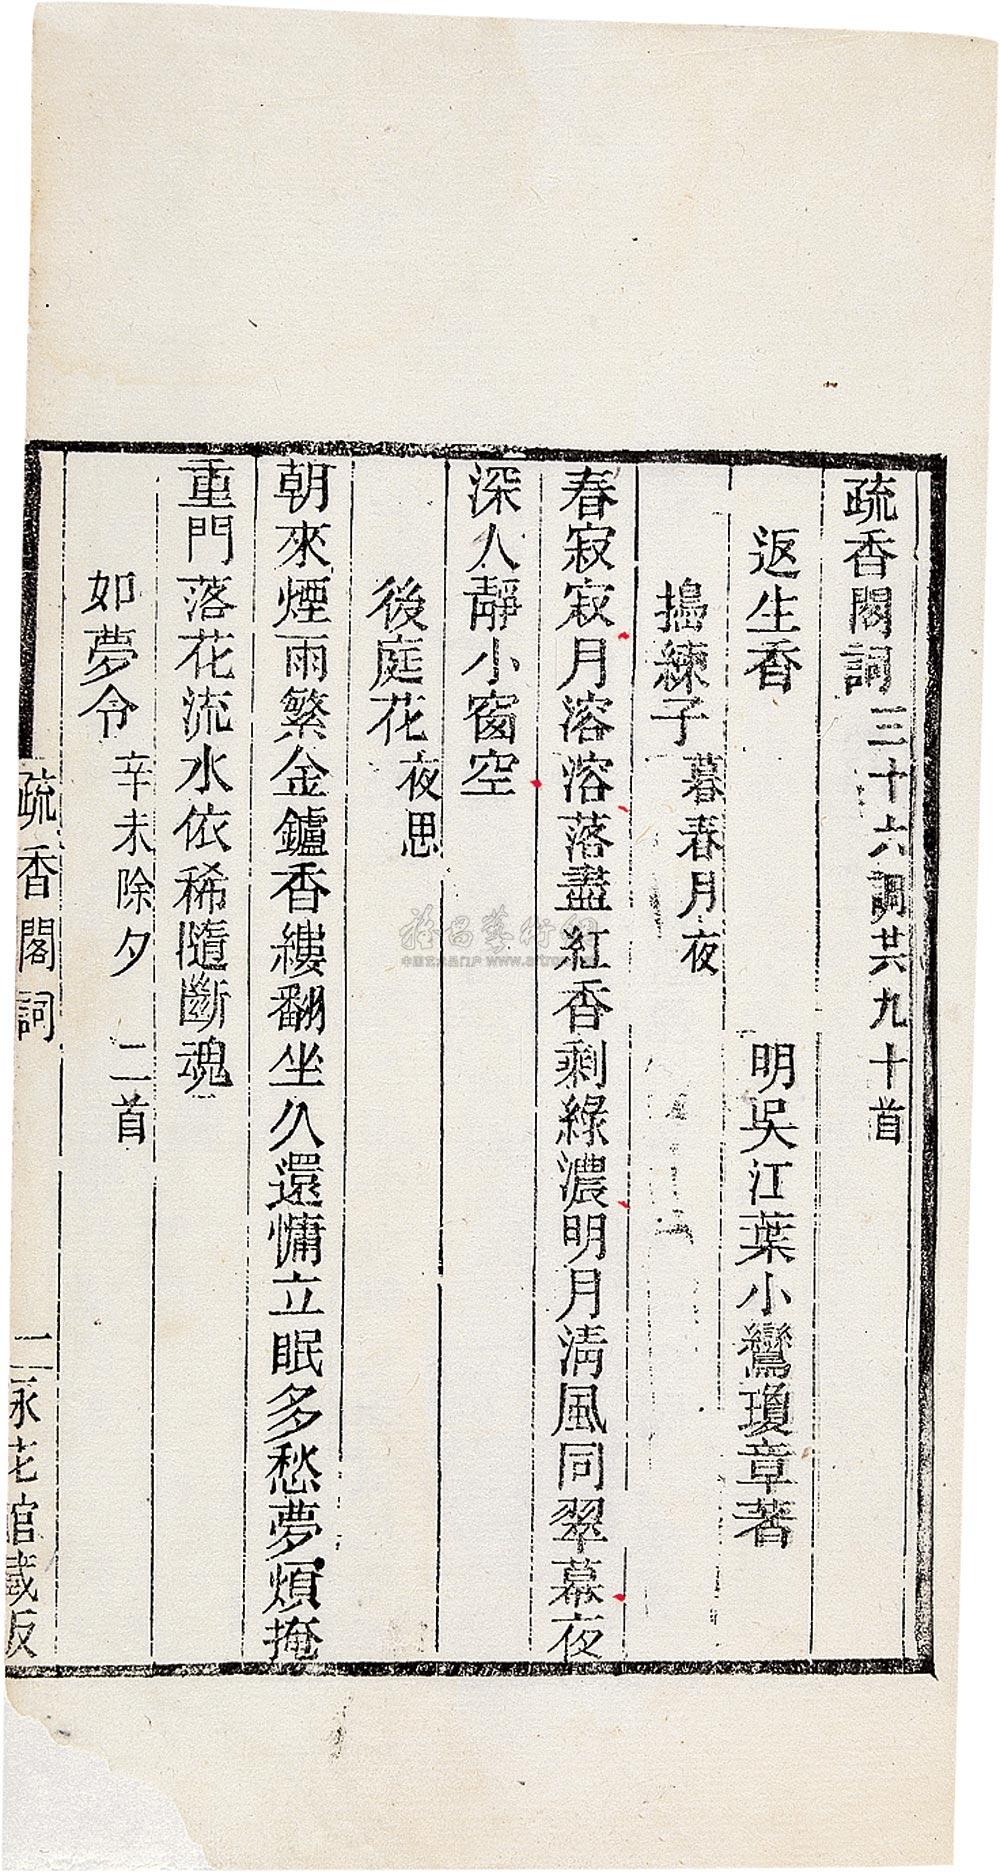 疏香閣詞三十六調共九十首
返生香 明吳江葉小鸞瓊章著
搗練子暮春月夜
春寂寂月溶溶落盡紅香剩綠濃明月清風同翠幕夜
深人靜小窗空
後庭花夜思
朝來煙雨繁金鑪香縷翻坐久還慵立眠多愁夢煩掩
重門落花流水依稀隨斷魂
如夢令辛未除夕 二首
疏香閣詞 一
花館藏板